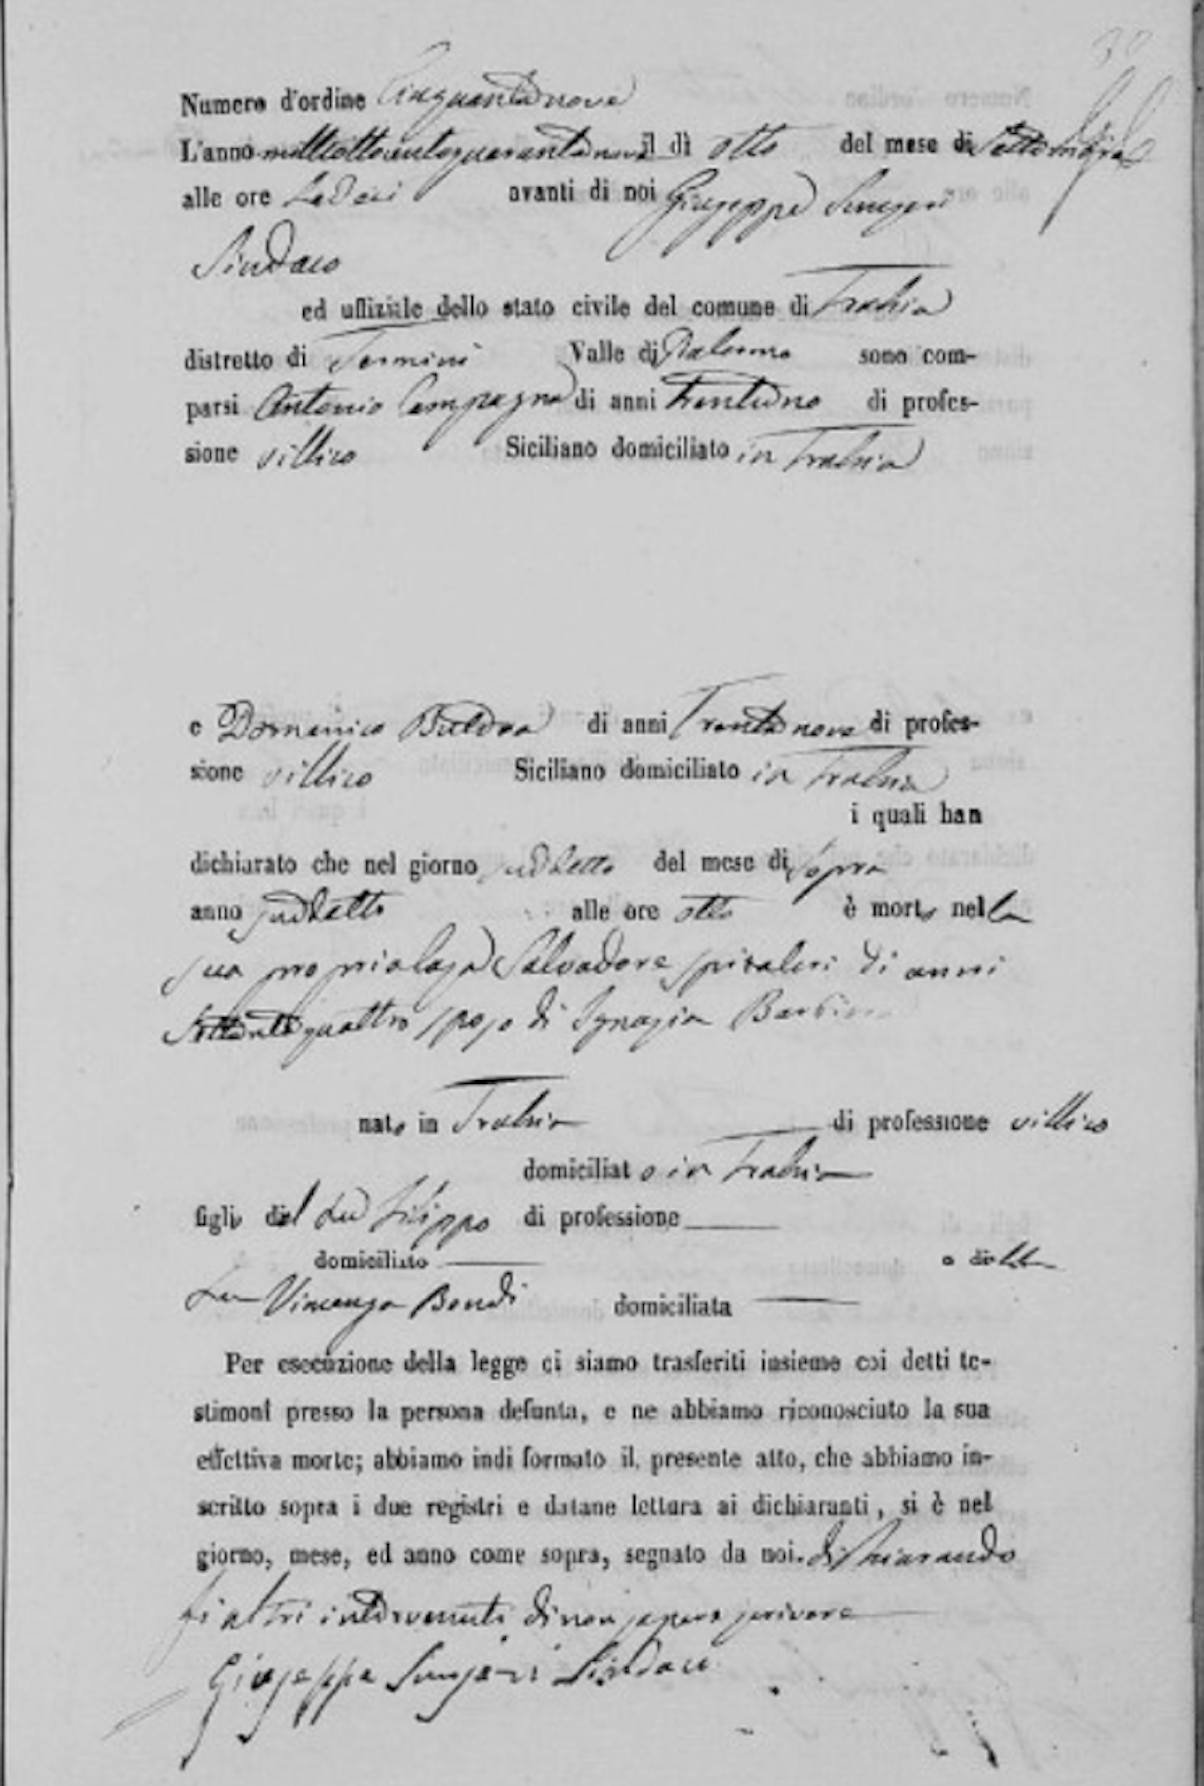 Numero d'ordine Cinquantanove
L'anno milleottocentoquarantanove il dì otto del mese di Settembre
alle ore sedeci avanti di noi Giuseppe
Sindaco
ed uffiziale dello stato civile del comune di Trabia
distretto di Termini Valle di Palermo sono com-
parsi Antonio Campagna di anni trentuno di profes-
sione villico Siciliano domiciliato in Trabia
e Domenico di anni Trentanove di profes-
sione villico Siciliano domiciliato in Trabia
i quali han
dichiarato che nel giorno suddetto del mese di sopra
anno suddetto alle ore otto è morto nella
sua propria casa Salvadore di anni
Settantaquattro sposo di Ignazia
nato in Trabia di professione villico
domiciliato in Trabia
figlio del fu Filippo di professione
domiciliato e della
fu Vincenza Bondi domiciliata
Per esecuzione della legge ci siamo trasferiti insieme coi detti te-
stimoni presso la persona defunta, e ne abbiamo riconosciuto la sua
effettiva morte; abbiamo indi formato il presente atto, che abbiamo in-
scritto sopra i due registri e datane lettura ai dichiaranti, si è nel
giorno, mese, ed anno come sopra, segnato da noi. dichiarando
gi altri intervenuti di non sapere scrivere
Giuseppe Sindaco